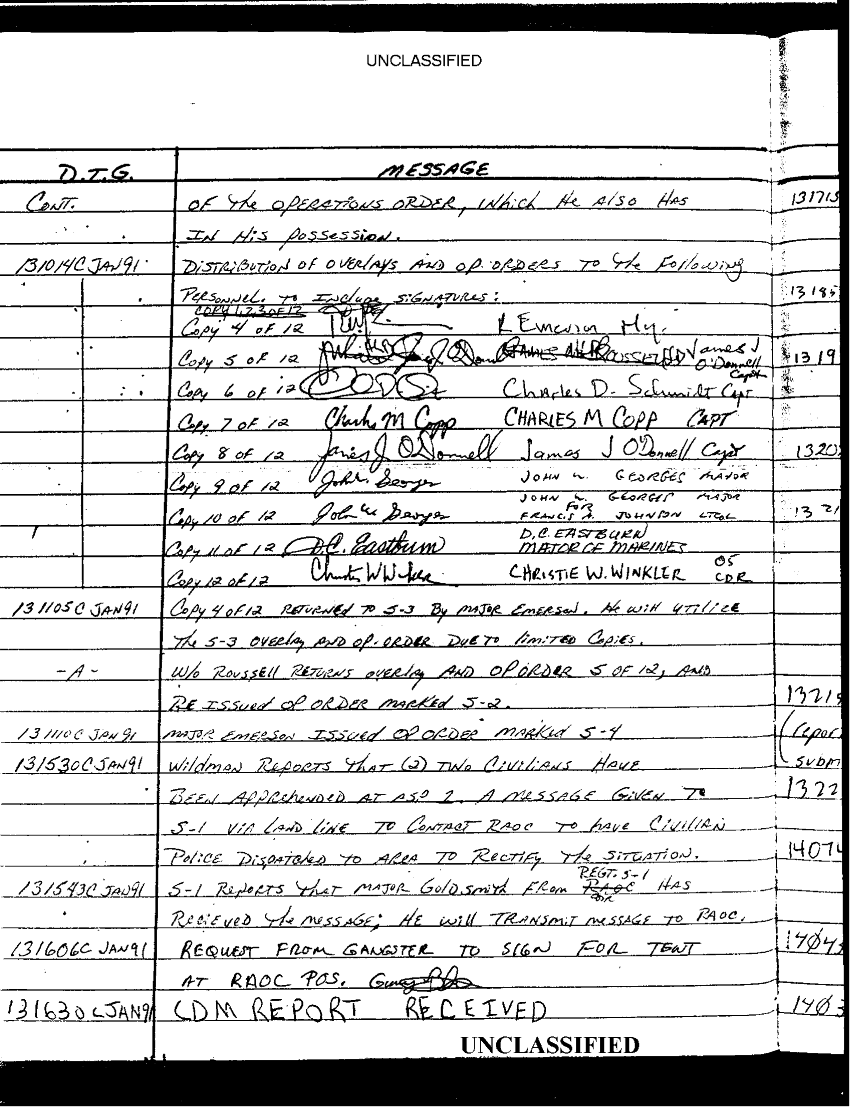 UNCLASSIFIED
D.T.G. MESSAGE
CONT. OF THE OPERATIONS ORDER, WHICH HE ALSO HAS 131715
IN HIS POSSESSION.
131014C JAN91 DISTRIBUTION OF OVERLAYS AND OP. ORDERS TO THE FOLLOWING
PERSONNEL. TO INCLUDE SIGNATURES: 13185
COPY 1,2,3 OF 12
COPY 4 OF 12 R Emerson Mj.
COPY 5 OF 12 James J O'Donnell Capt 1319
COPY 6 OF 12 Charles D. Schmidt Capt
COPY 7 OF 12 Charles M Copp CHARLES M COPP CAPT
COPY 8 OF 12 James J O'Donnell James J O'Donnell Capt 1320
COPY 9 OF 12 John W. Georges JOHN W. GEORGES MAJOR
JOHN W. GEORGES MAJOR
COPY 10 OF 12 John W Georges FOR FRANCIS A. JOHNSON LTCOL 1321
COPY 11 OF 12 D.C. Eastburn D.C. EASTBURN
MAJOR OF MARINES
COPY 12 OF 12 Christie W Winkler CHRISTIE W. WINKLER O5 CDR
131105C JAN91 COPY 4 OF 12 RETURNED TO S-3 BY MAJOR EMERSON. HE WILL UTILICE
THE S-3 OVERLAY AND OP. ORDER DUE TO LIMITED COPIES.
-A- W/O ROUSSELL RETURNS OVERLAY AND OP ORDER 5 OF 12, AND
RE ISSUED OP ORDER MARKED S-2. 13215
131110C JAN91 MAJOR EMERSON ISSUED OP ORDER MARKED S-4 (repor
131530C JAN91 WILDMAN REPORTS THAT (2) TWO CIVILIANS HAVE subm
BEEN APPREHENDED AT ASP 2. A MESSAGE GIVEN TO 1322
S-1 VIA LAND LINE TO CONTACT RAOC TO HAVE CIVILIAN
POLICE DISPATCHED TO AREA TO RECTIFY THE SITUATION. 1407
REGT. S-1
131543C JAN91 S-1 REPORTS THAT MAJOR GOLDSMITH FROM RAOC HAS
RECIEVED THE MESSAGE; HE WILL TRANSMIT MESSAGE TO RAOC.
131606C JAN91 REQUEST FROM GANGSTER TO SIGN FOR TENT 14045
AT RAOC POS.
131630C JAN91 CDM REPORT RECEIVED 1403
UNCLASSIFIED